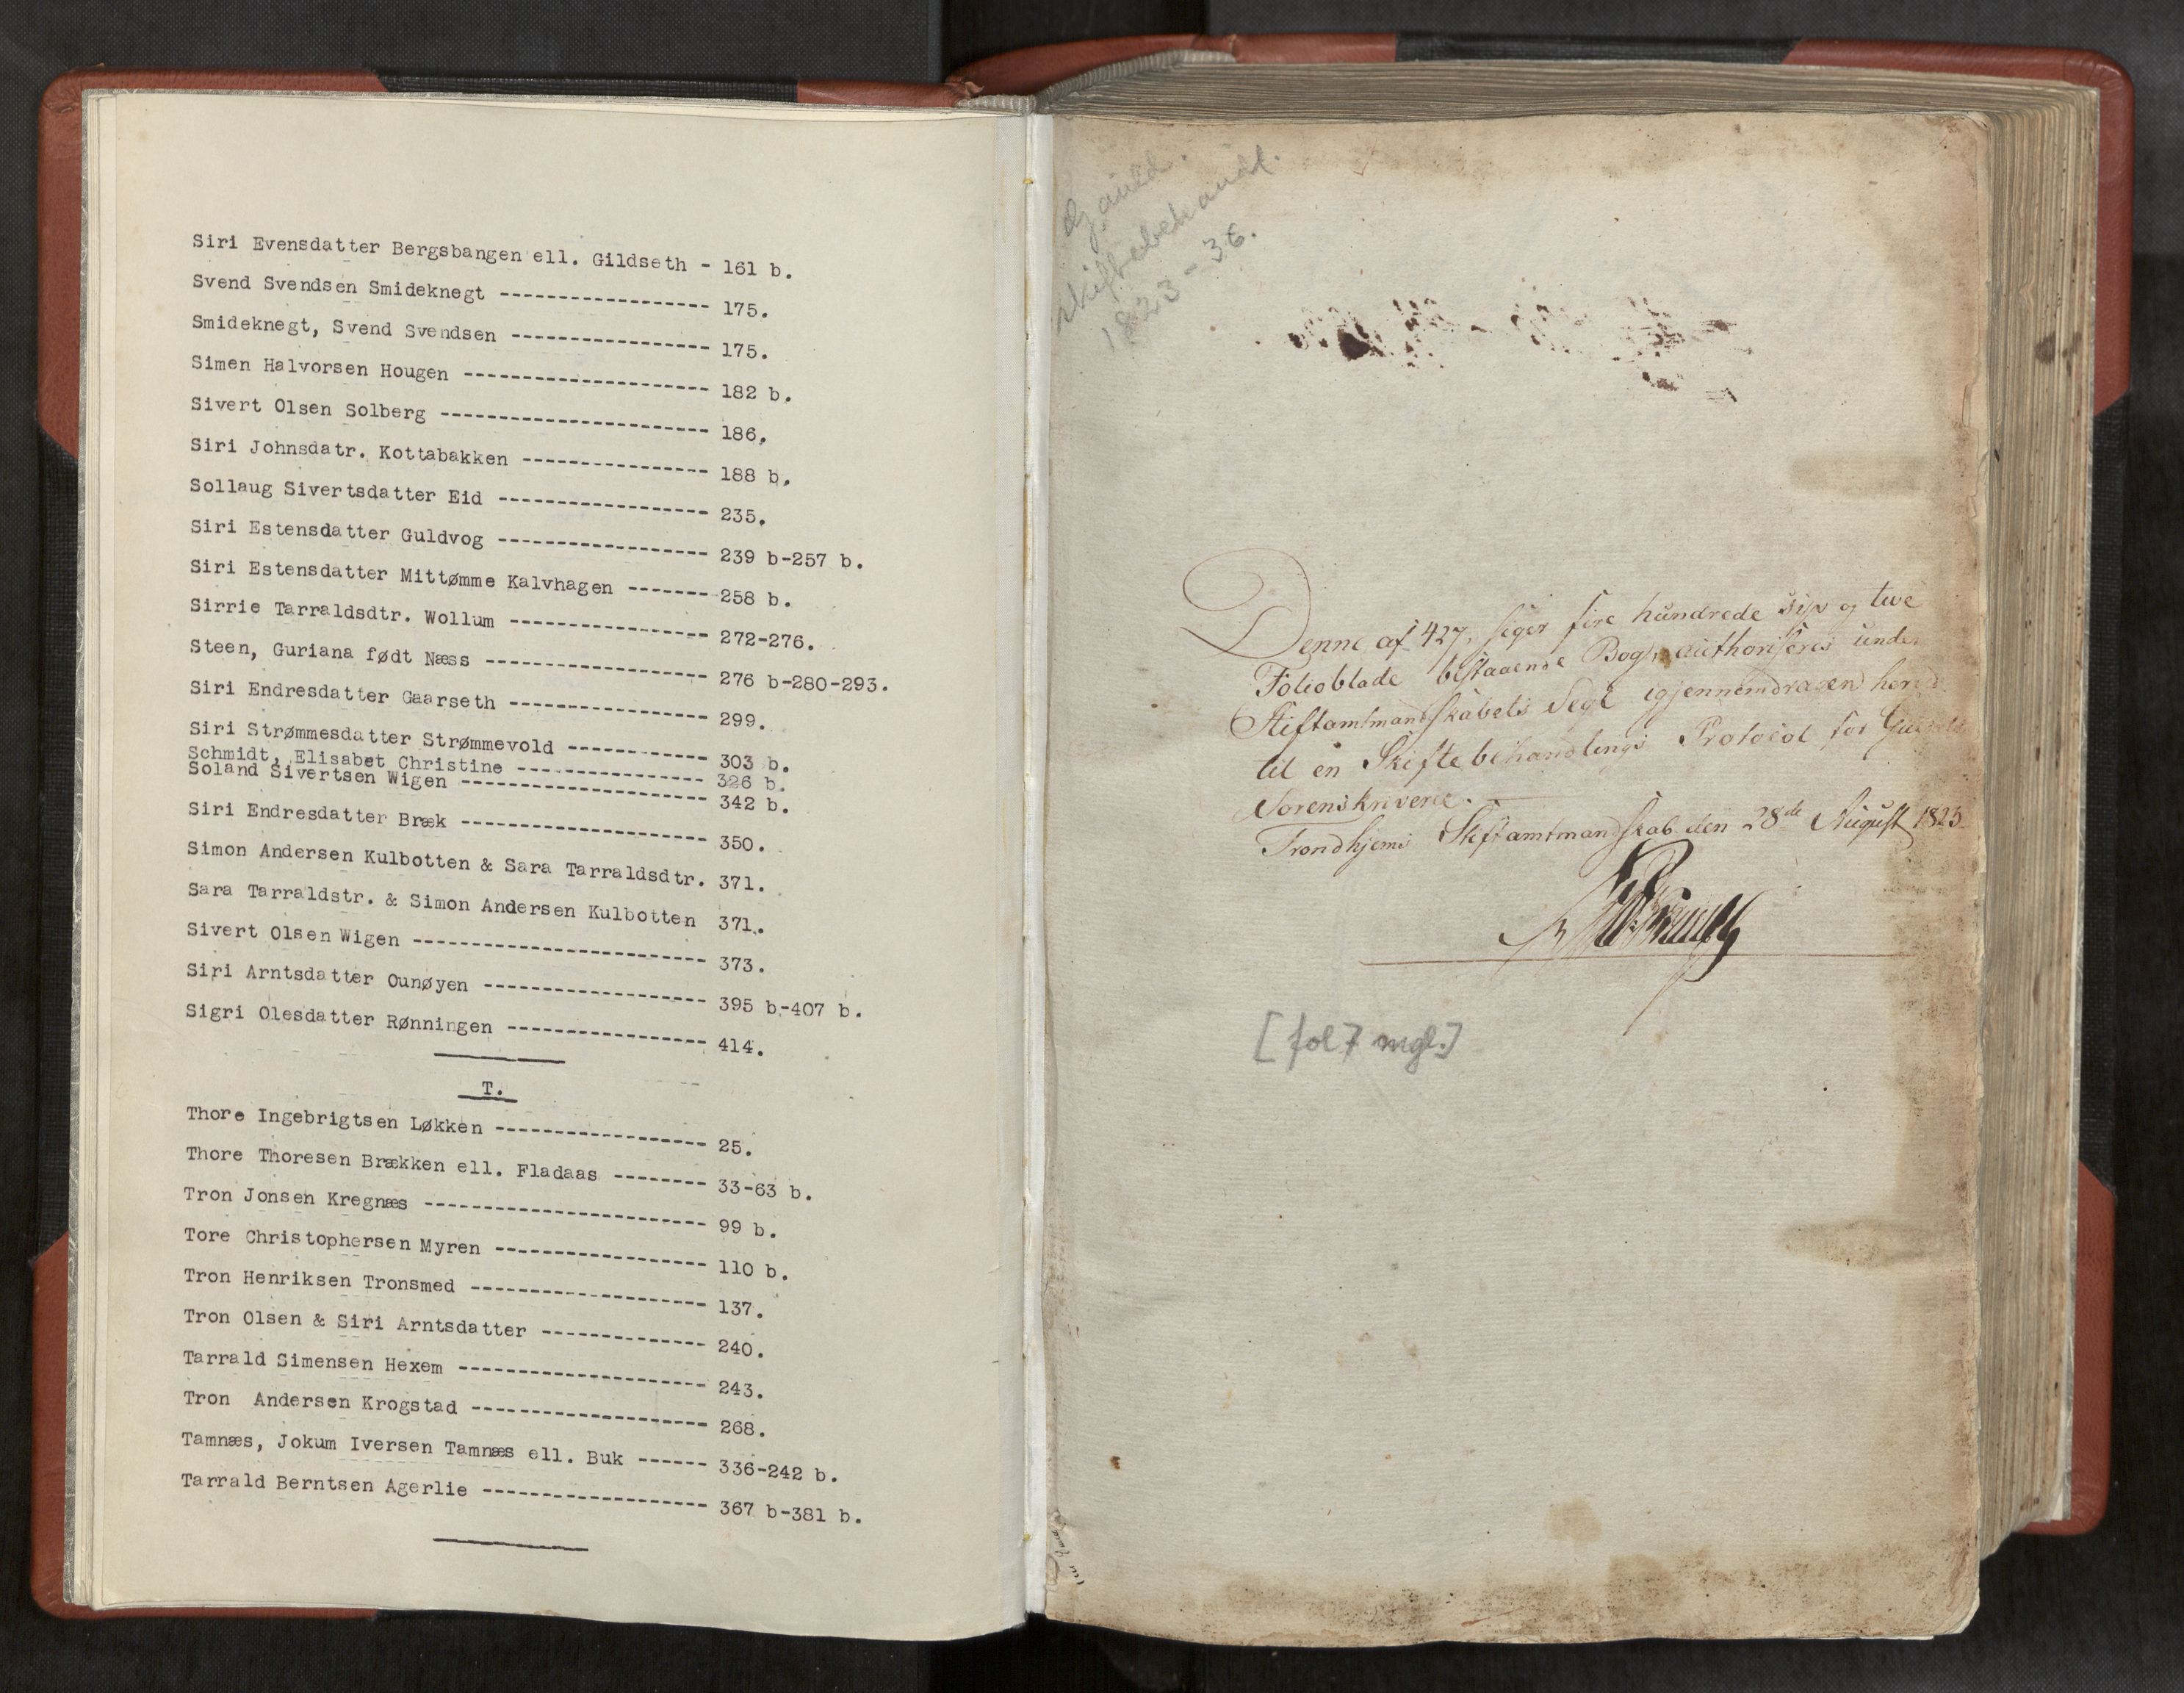 Siri Evensdatter Bergsbangen ell. Gildseth - 161 b.
Svend Svendsen Smideknegt ------------------ 175.
Smideknegt, Svend Svendsen ----------------- 175.
Simen Halvorsen Hougen --------------------- 182 b.
Sivert Olsen Solberg ----------------------- 186.
Siri Johnsdatr. Kottabakken ---------------- 188 b.
Sollaug Sivertsdatter Eid ------------------ 235.
Siri Estensdatter Guldvog ------------------ 239 b-257 b.
Siri Estensdatter Mittømme Kalvhagen ------- 258 b.
Sirrie Tarraldsdtr. Wollum ----------------- 272-276.
Steen, Guriana født Næss ------------------- 276 b-280-293.
Siri Endresdatter Gaarseth ----------------- 299.
Siri Strømmesdatter Strømmevold ------------ 303 b.
Schmidt, Elisabet Christine ---------------- 326 b.
Soland Sivertsen Wigen --------------------- 342 b.
Siri Endresdatter Bræk --------------------- 350.
Simon Andersen Kulbotten & Sara Tarraldsdtr. 371.
Sara Tarraldstr. & Simon Andersen Kulbotten 371.
Sivert Olsen Wigen ------------------------- 373.
Siri Arntsdatter Ounøyen ------------------- 395 b-407 b.
Sigri Olesdatter Rønningen ----------------- 414.
T.
Thore Ingebrigtsen Løkken ------------------ 25.
Thore Thoresen Brækken ell. Fladaas -------- 33-63 b.
Tron Jonsen Kregnæs ------------------------ 99 b.
Tore Christophersen Myren ------------------ 110 b.
Tron Henriksen Tronsmed -------------------- 137.
Tron Olsen & Siri Arntsdatter -------------- 240.
Tarrald Simensen Hexem --------------------- 243.
Tron Andersen Krogstad -------------------- 268.
Tamnæs, Jokum Iversen Tamnæs ell. Buk ------ 336-242 b.
Tarrald Berntsen Agerlie ------------------- 367 b-381 b.
Gauld.
skiftebehandl.
1823-36.
Denne af 427, siger fire hundrede syv og tive
Folioblade bestaaende Bog, authoriseres under
Stiftamtmandskabets Segl igjennemdragen
til en Skiftebehandlings Protocol for
Sorenskriverie.
Trondhjems Stiftamtmandskab den 28de August 1823.
[fol 7 mgl.]